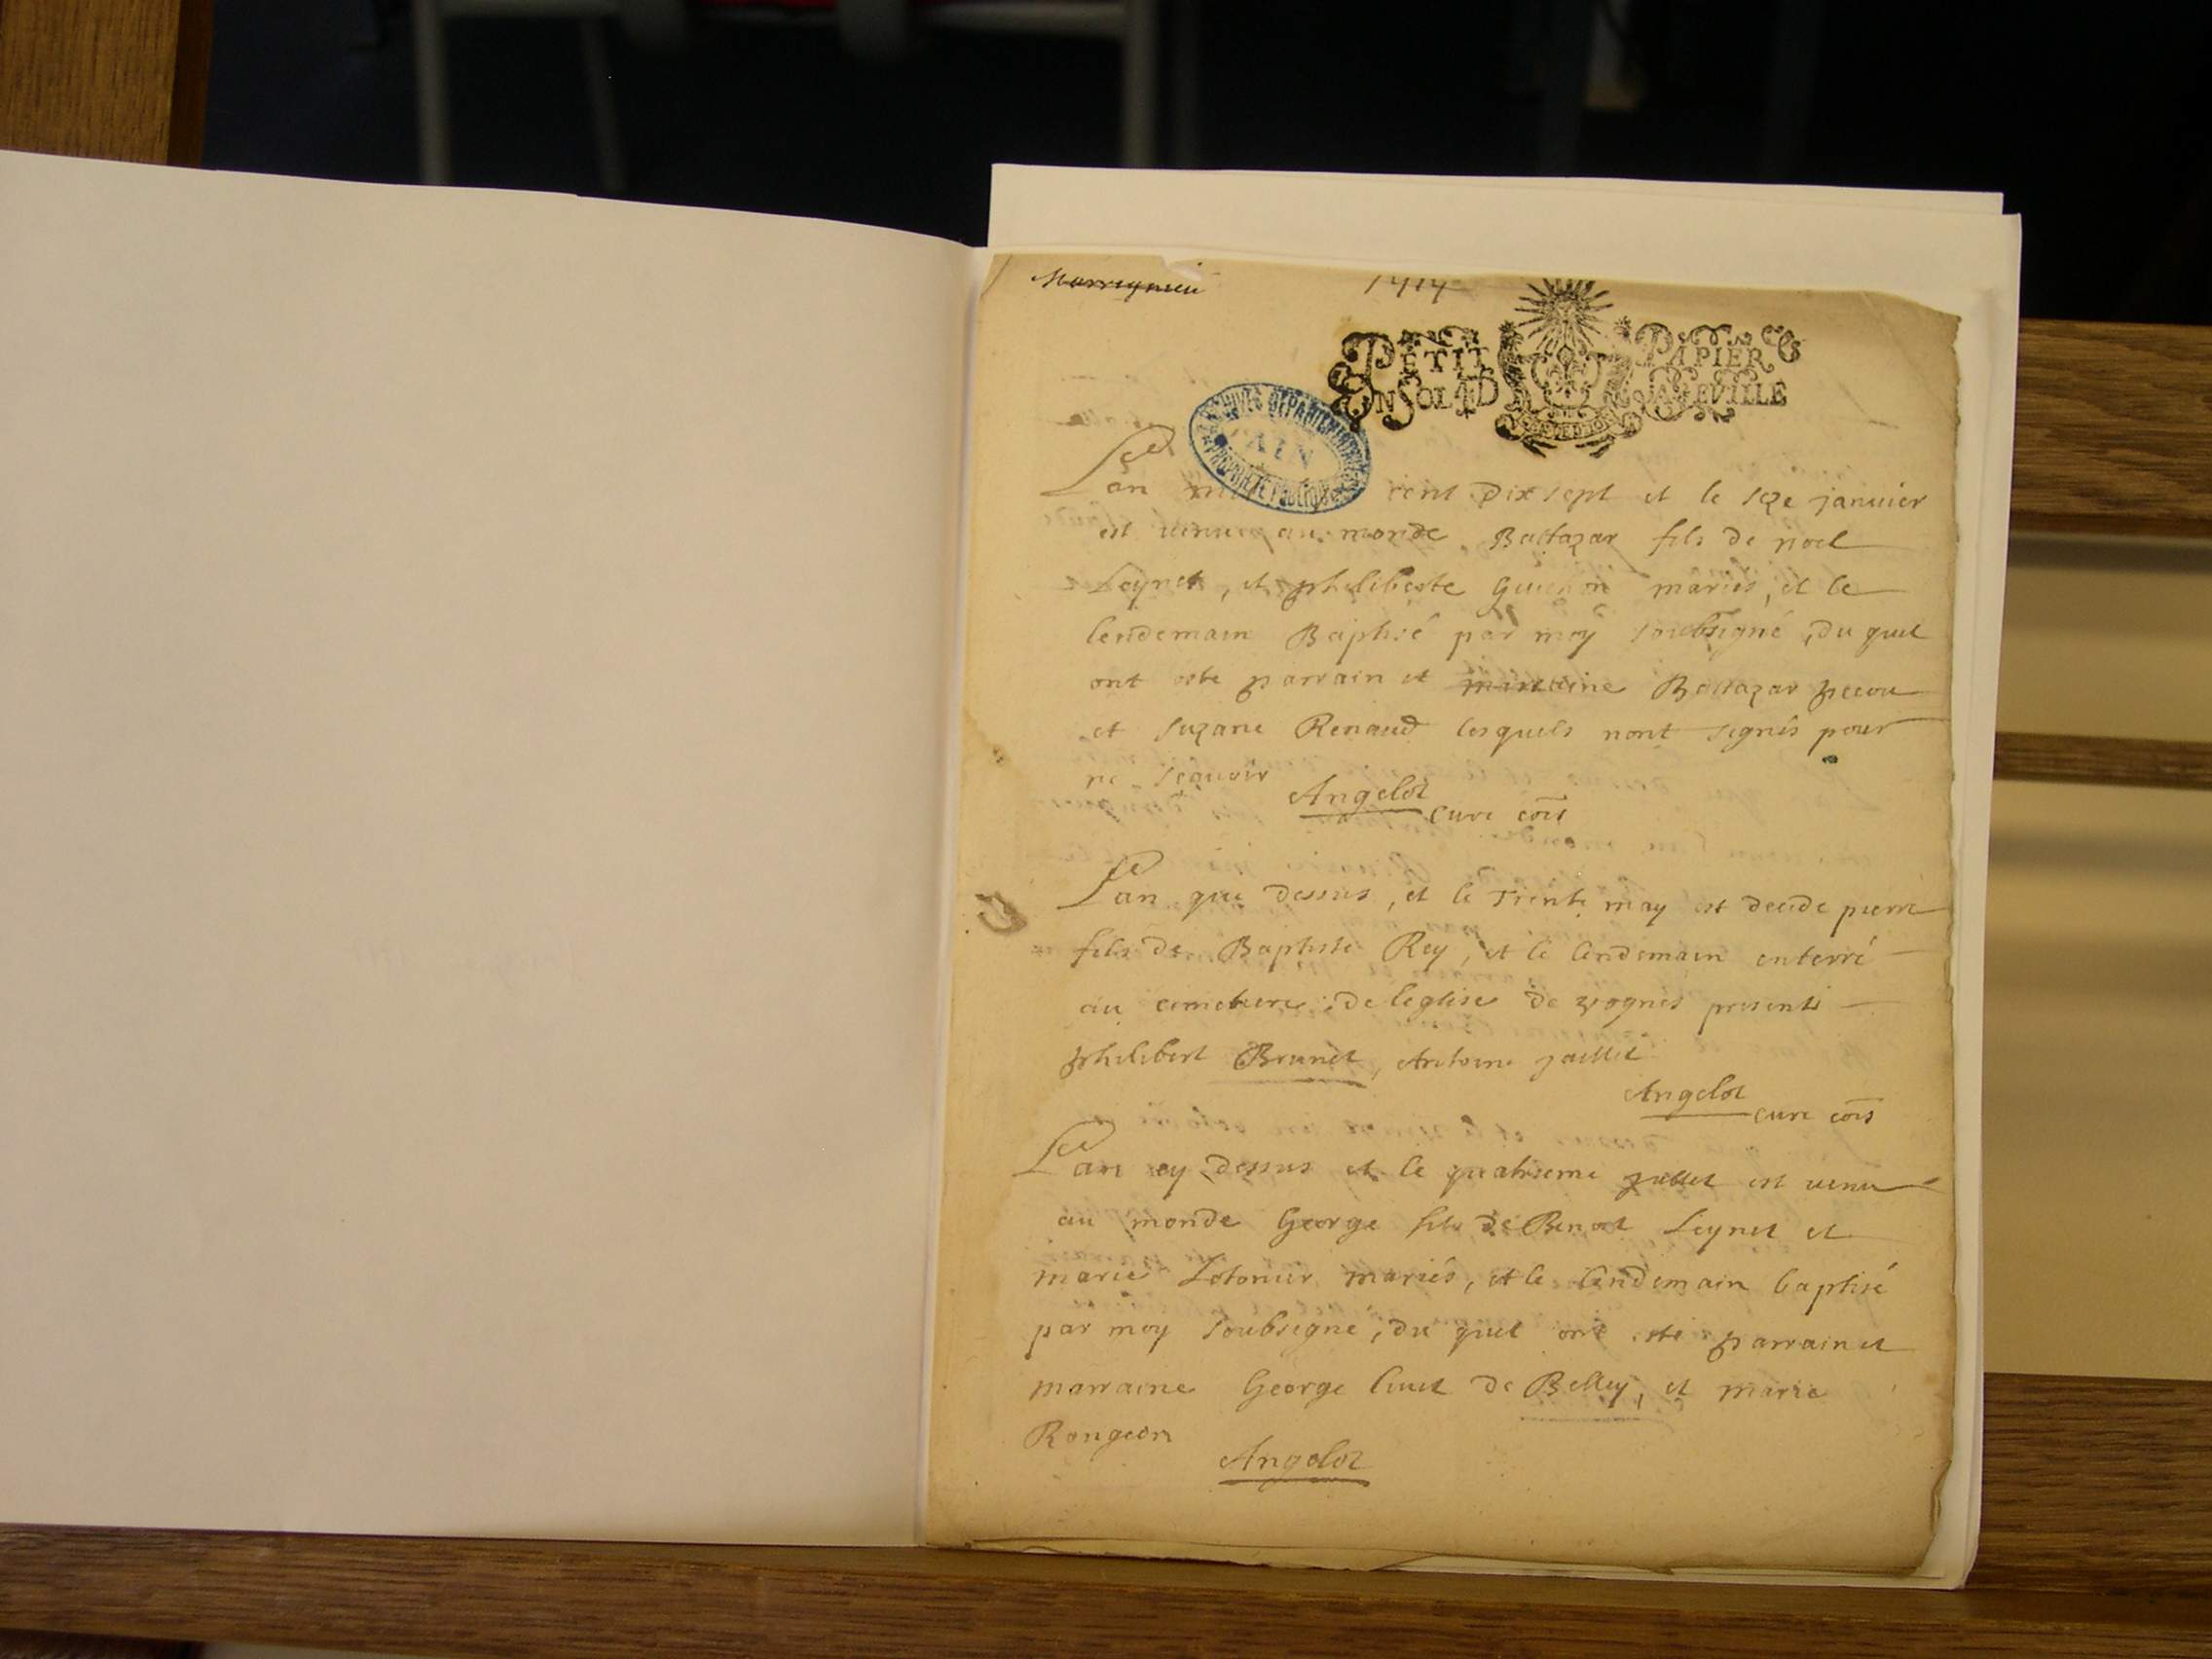 Marrignieu
1717
PETIT PAPIER
UN SOL 4 D LA FEUILLE
ARCHIVES DEPARTEMENTALES
AIN
PROPRIETE PUBLIQUE
Lan mil cent dix sept et le seze janvier
est venu au monde Baltazar fils de noel
Leynet, et philiberte Guichon mariés, et le
lendemain Baptisé par moy soubsigné, du quel
ont esté parrain et marraine Baltazar pecou
et suzane Renaud lesquels nont signés pour
ne scavoir
Angelot curé cõis
Lan que dessus, et le trente may est decide pierre
fils de Baptiste Rey, et le lendemain enterré
au cimetiere de leglise de vognes presents
philibert Brunet, Antoine jaillet
Angelot curé cõis
Lan cy dessus et le quatrieme juillet est venu
au monde George fils de Benoit Leynet et
marie mariés, et le lendemain baptisé
par moy soubsigne, du quel ont esté parrain et
marraine George livet de Belley, et marie
Rongeon
Angelot